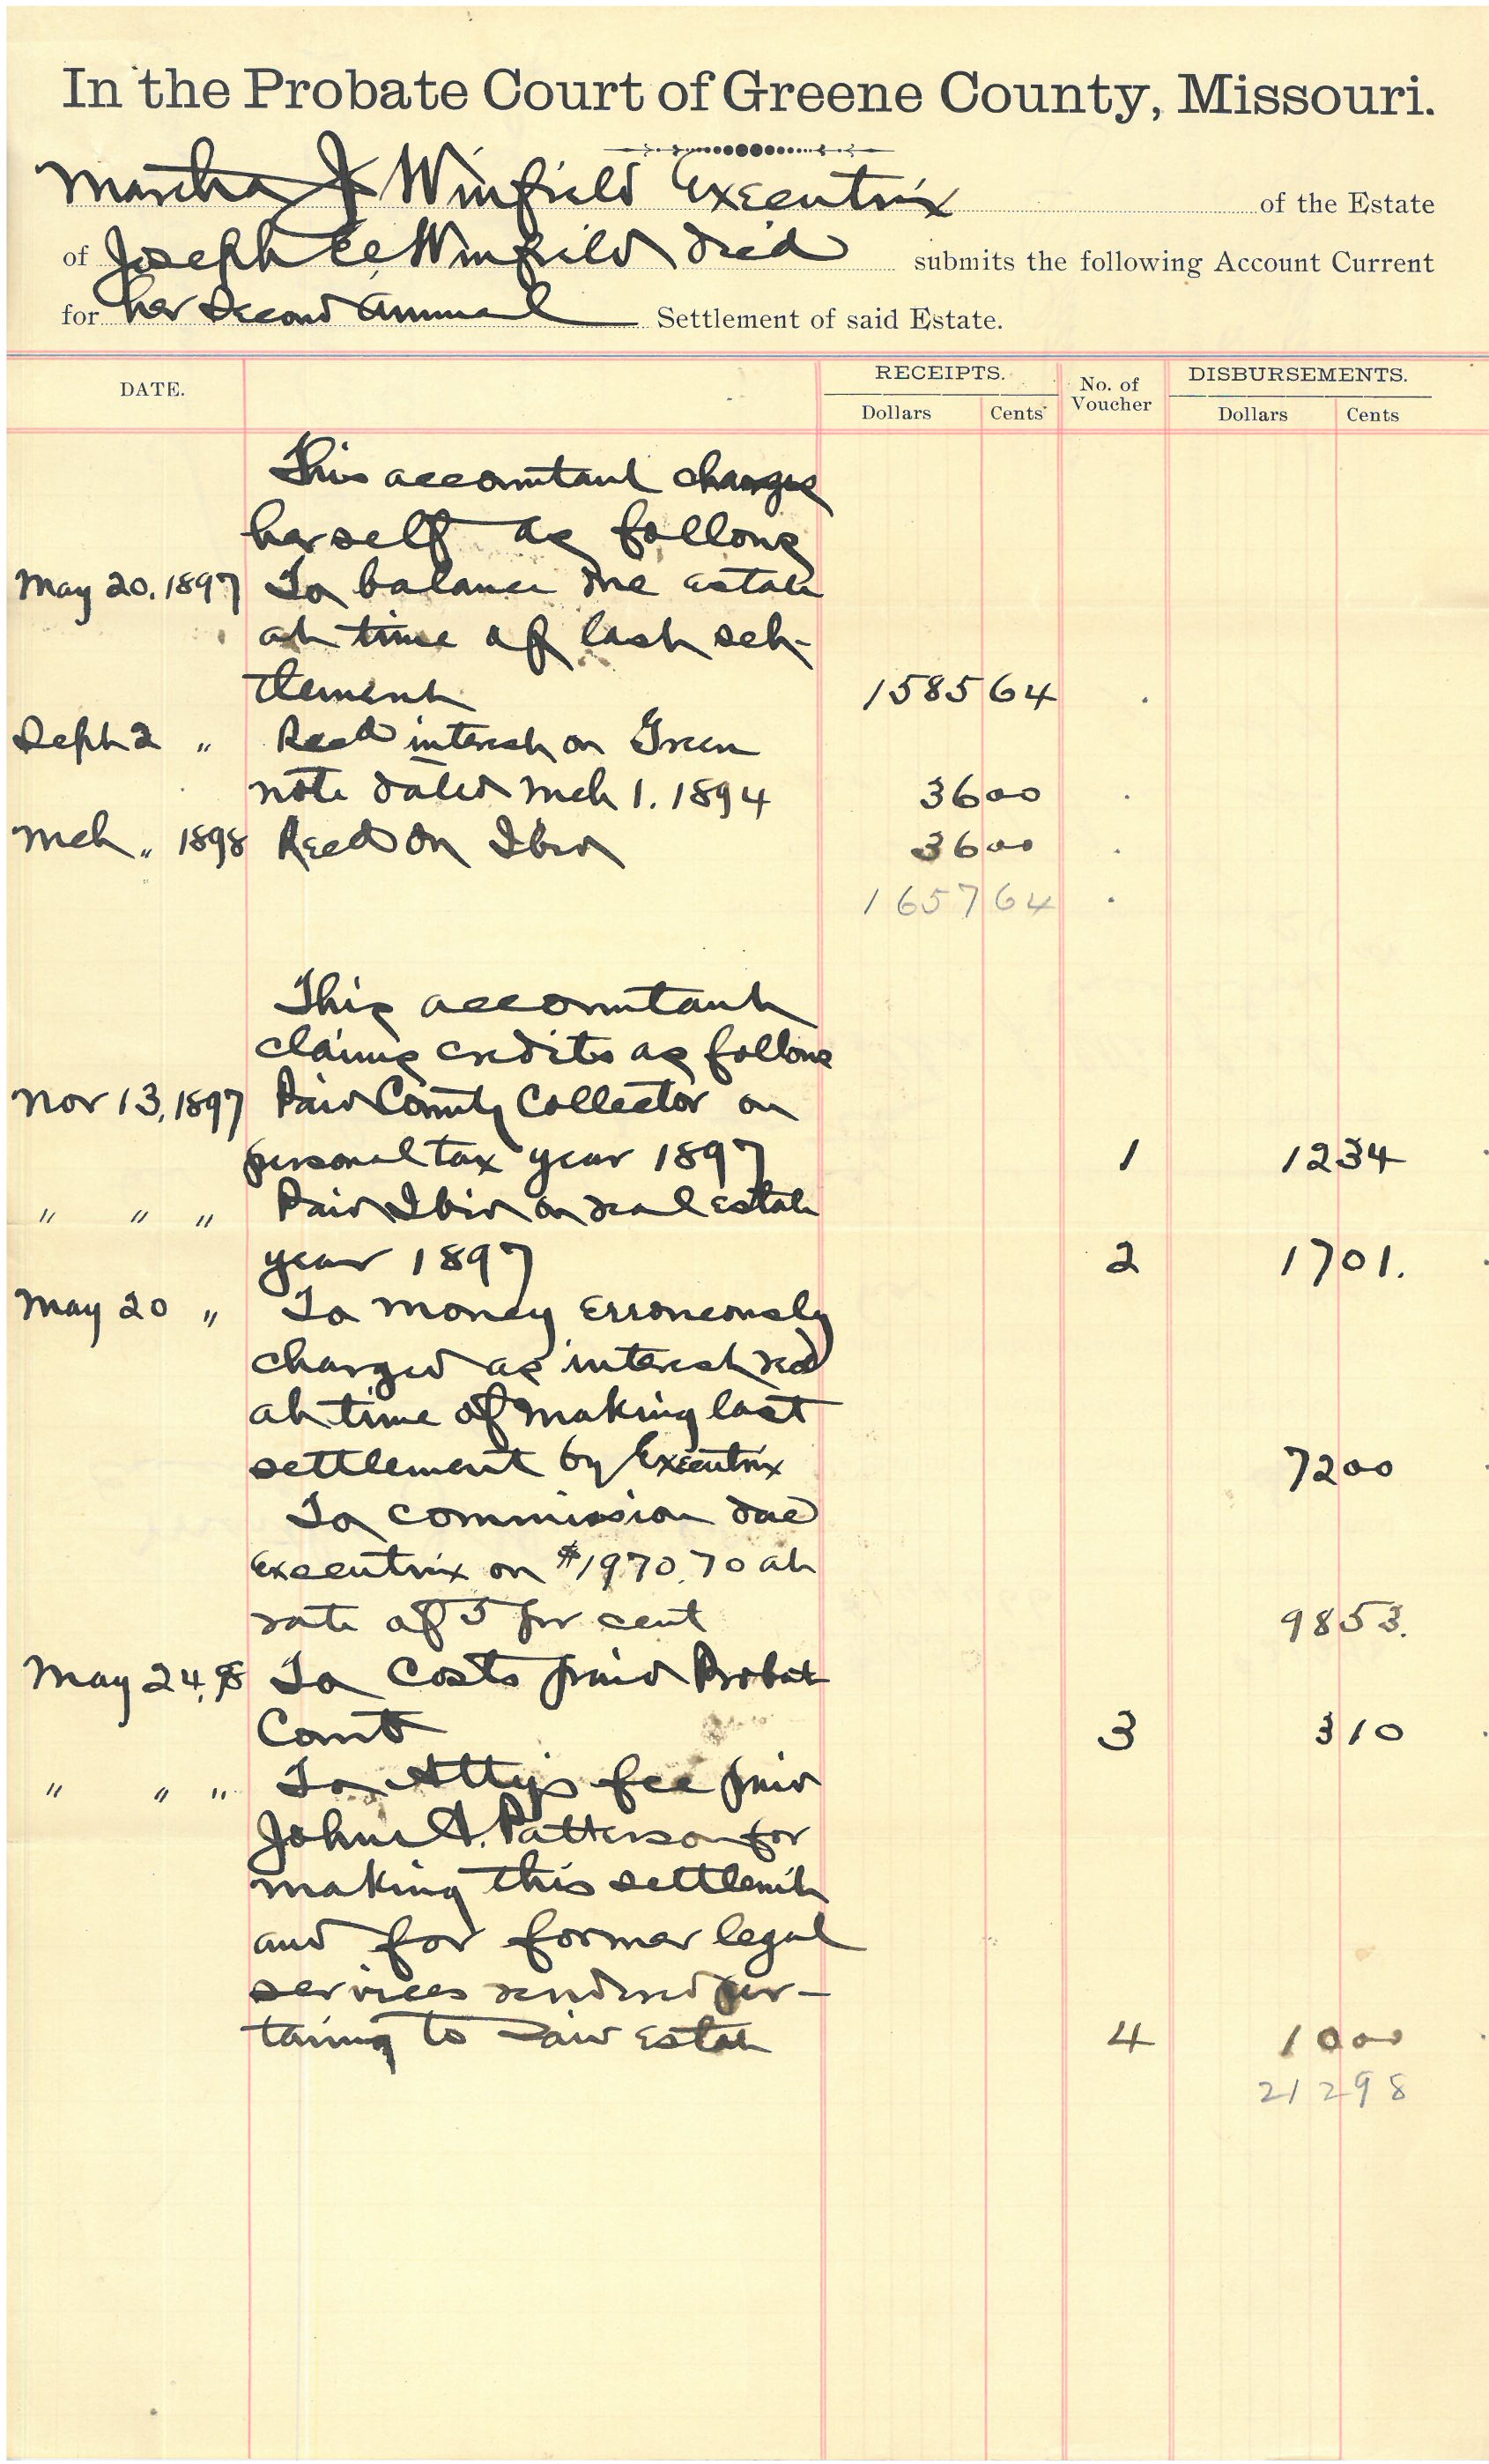 In the Probate Court of Greene County, Missouri.
Martha J Winfield Executrix of the Estate
of Joseph C. Winfield decd submits the following Account Current
for her Second Annual Settlement of said Estate.
DATE. RECEIPTS. No. of Voucher DISBURSEMENTS.
Dollars Cents Dollars Cents
This accountant charges
herself as follows
May 20, 1897 To balance due estate
at time of last set-
tlement 1585 64
Sept 2 " Recd interest on Green
note dated Mch 1. 1894 36 00
Mch " 1898 Recd on Ibid 36 00
1657 64
This accountant
claims credits as follows
Nov 13, 1897 Paid County Collector on
personal tax year 1897 1 12 34
" " " Paid Ibid on real estate
year 1897 2 17 01.
May 20 " To money erroneously
charged as interest recd
at time of making last
settlement by Executrix 72 00
To commission due
Executrix on $1970.70 at
rate of 5 per cent 98 53.
May 24, 98 To costs paid Probate
Court 3 3 10
" " " To Atty's fee paid
John A. Patterson for
making this settlemt
and for former legal
services rendered per-
taining to said Estate 4 10 00
212 98